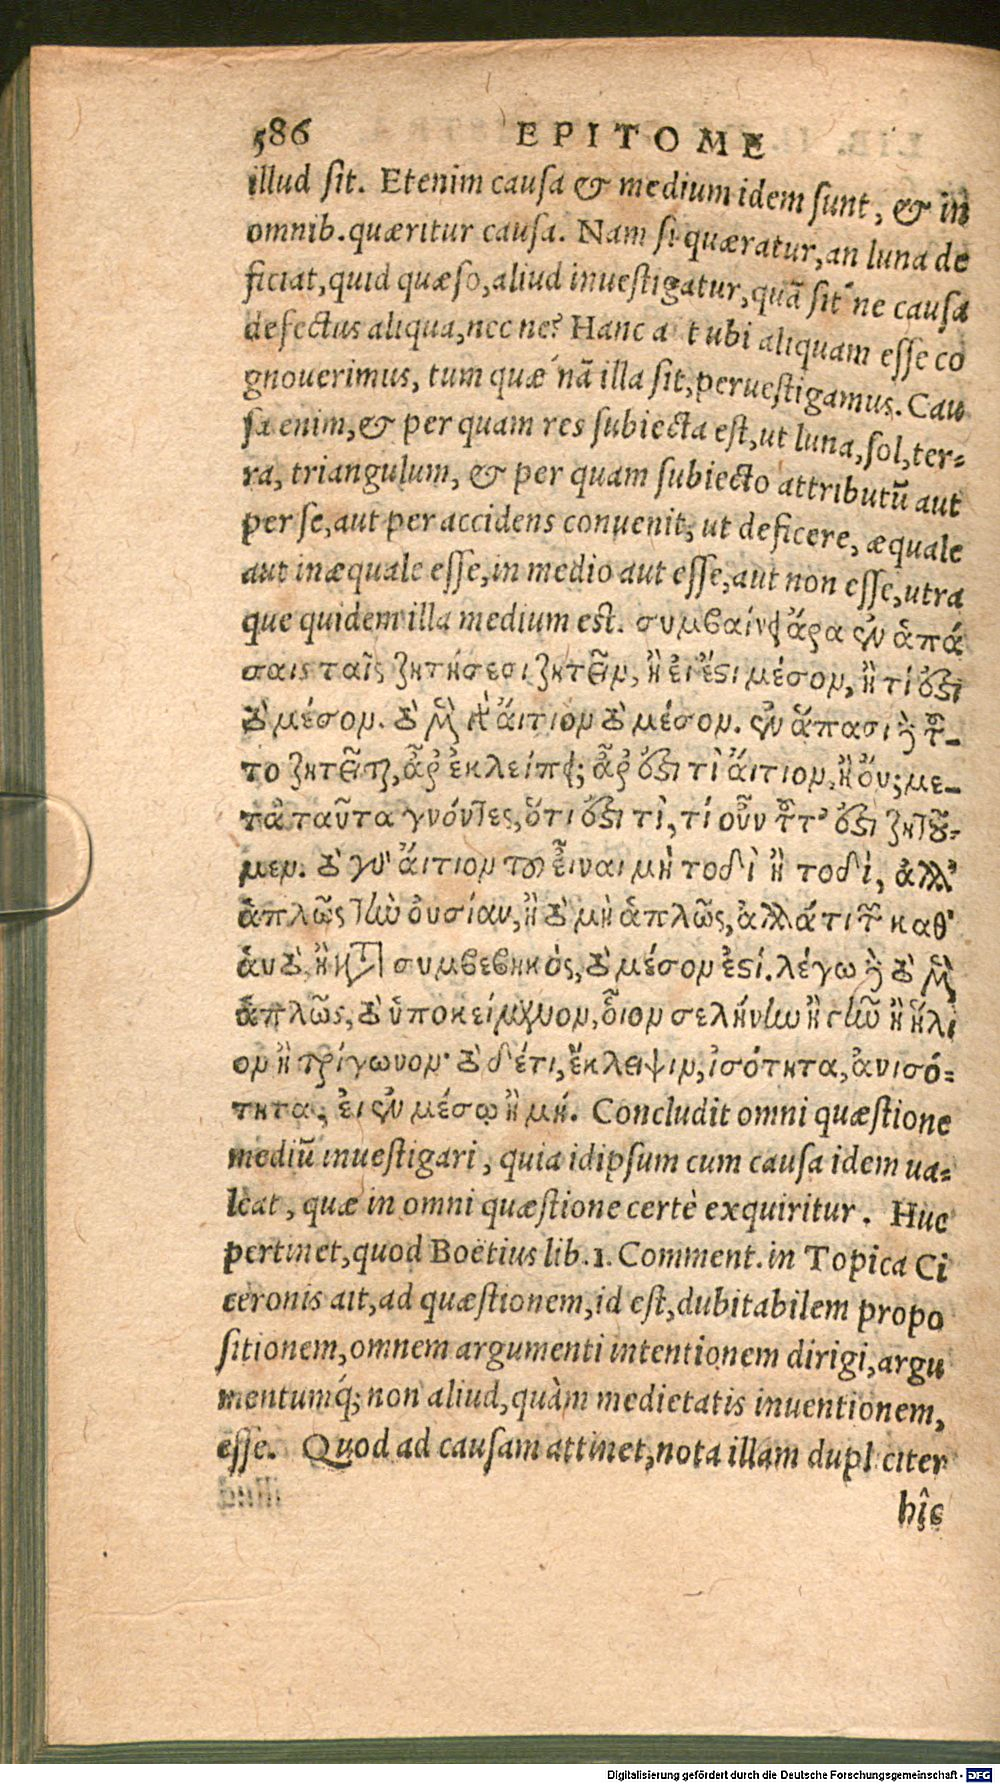 586 EPITOME
illud sit. Etenim causa & medium idem sunt, & in
omnib. quæritur causa. Nam si quæratur, an luna de
ficiat, quid quæso, aliud inuestigatur, quã sit ne causa
defectus aliqua, nec ne? Hanc a t ubi aliquam esse co
gnouerimus, tum quæ nã illa sit, peruestigamus. Cau
sa enim, & per quam res subiecta est, ut luna, sol, ter-
ra, triangulum, & per quam subiecto attributũ aut
per se, aut per accidens conuenit, ut deficere, æquale
aut inæquale esse, in medio aut esse, aut non esse, utra
que quidem illa medium est. συμβαίνει ἄρα ἐν ἁπά
σαις ταῖς ζητήσεσι ζητεῖν, ἢ εἰ ἔστι μέσον, ἢ τί ἐστι
τὸ μέσον. τὸ μὲν γὰρ ἄιτιον τὸ μέσον. ἐν ἅπασι δὲ τοῦ-
το ζητεῖται, ἆρ᾽ ἐκλείπει; ἆρ᾽ ἐστι τὶ ἄιτιον, ἢ ὄυ; με-
τὰ ταῦτα γνόντες, ὅτι ἐστι τὶ, τί οὖν τοῦτ᾽ ἐστι ζητοῦ-
μεν. τὸ γὰρ ἄιτιον τοῦ εἶναι μὴ τοδὶ ἢ τοδί, ἀλλ᾽
ἁπλῶς τὴν ὀυσίαν, ἢ τὸ μὴ ἁπλῶς, ἀλλά τι τῶν καθ᾽
ἁυτὸ, ἢ κατὰ συμβεβηκὸς, τὸ μέσον ἐστί. λέγω δὲ τὸ μὲν
ἁπλῶς, τὸ ὑποκείμενον, οἷον σελήνην ἢ γῆν ἢ ἥλι
ον ἢ τρίγωνον· τὸ δέ τι, ἔκλειψιν, ἰσότητα, ἀνισό-
τητα, ἐι ἐν μέσῳ ἢ μή. Concludit omni quæstione
mediũ inuestigari, quia idipsum cum causa idem ua-
leat, quæ in omni quæstione certè exquiritur. Huc
pertinet, quod Boëtius lib. 1. Comment. in Topica Ci
ceronis ait, ad quæstionem, id est, dubitabilem propo
sitionem, omnem argumenti intentionem dirigi, argu
mentumq́; non aliud, quàm medietatis inuentionem,
esse. Quod ad causam attinet, nota illam dupl citer
hîc
Digitalisierung gefördert durch die Deutsche Forschungsgemeinschaft - DFG